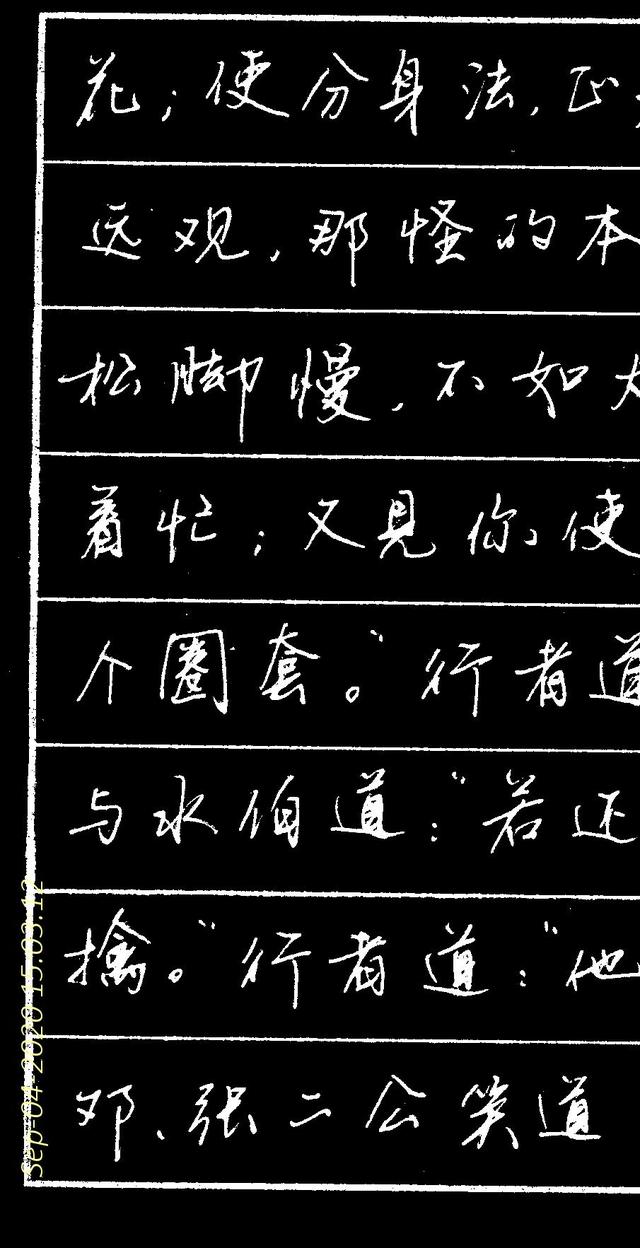 花；使分身法，正
远观，那怪的本
松脚慢，不如大
着忙；又见你使
个圈套。”行者道
与水伯道：“若还
擒。”行者道：“他
邓、张二公笑道
Sep-04-2020 15:03:12